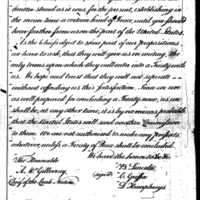 tinues stand as is now for the present, establishing in
the mean time a certain kind of Truce, until you should
have further from us on the part of the United States.
As the chief object to some part of our propositions,
we have to ask, that they will give us in writing, the
only terms upon which they will enter into a Treaty with
us. We hope and trust that they will not separate
without affording us this satisfaction. Since we are
as well prepared for concluding a Treaty now, as we
shall be at any other time, it is by no means probable
that the United States will send another Commission
to them. We are not authorised to make any
whatever, until a Treaty of Peace shall be concluded.
We have the honor to be &c
The Honorable
A. McGillivray
Chief of the Creek Nation
(signed)
B. Lincoln
C. Griffin
D. Humphreys